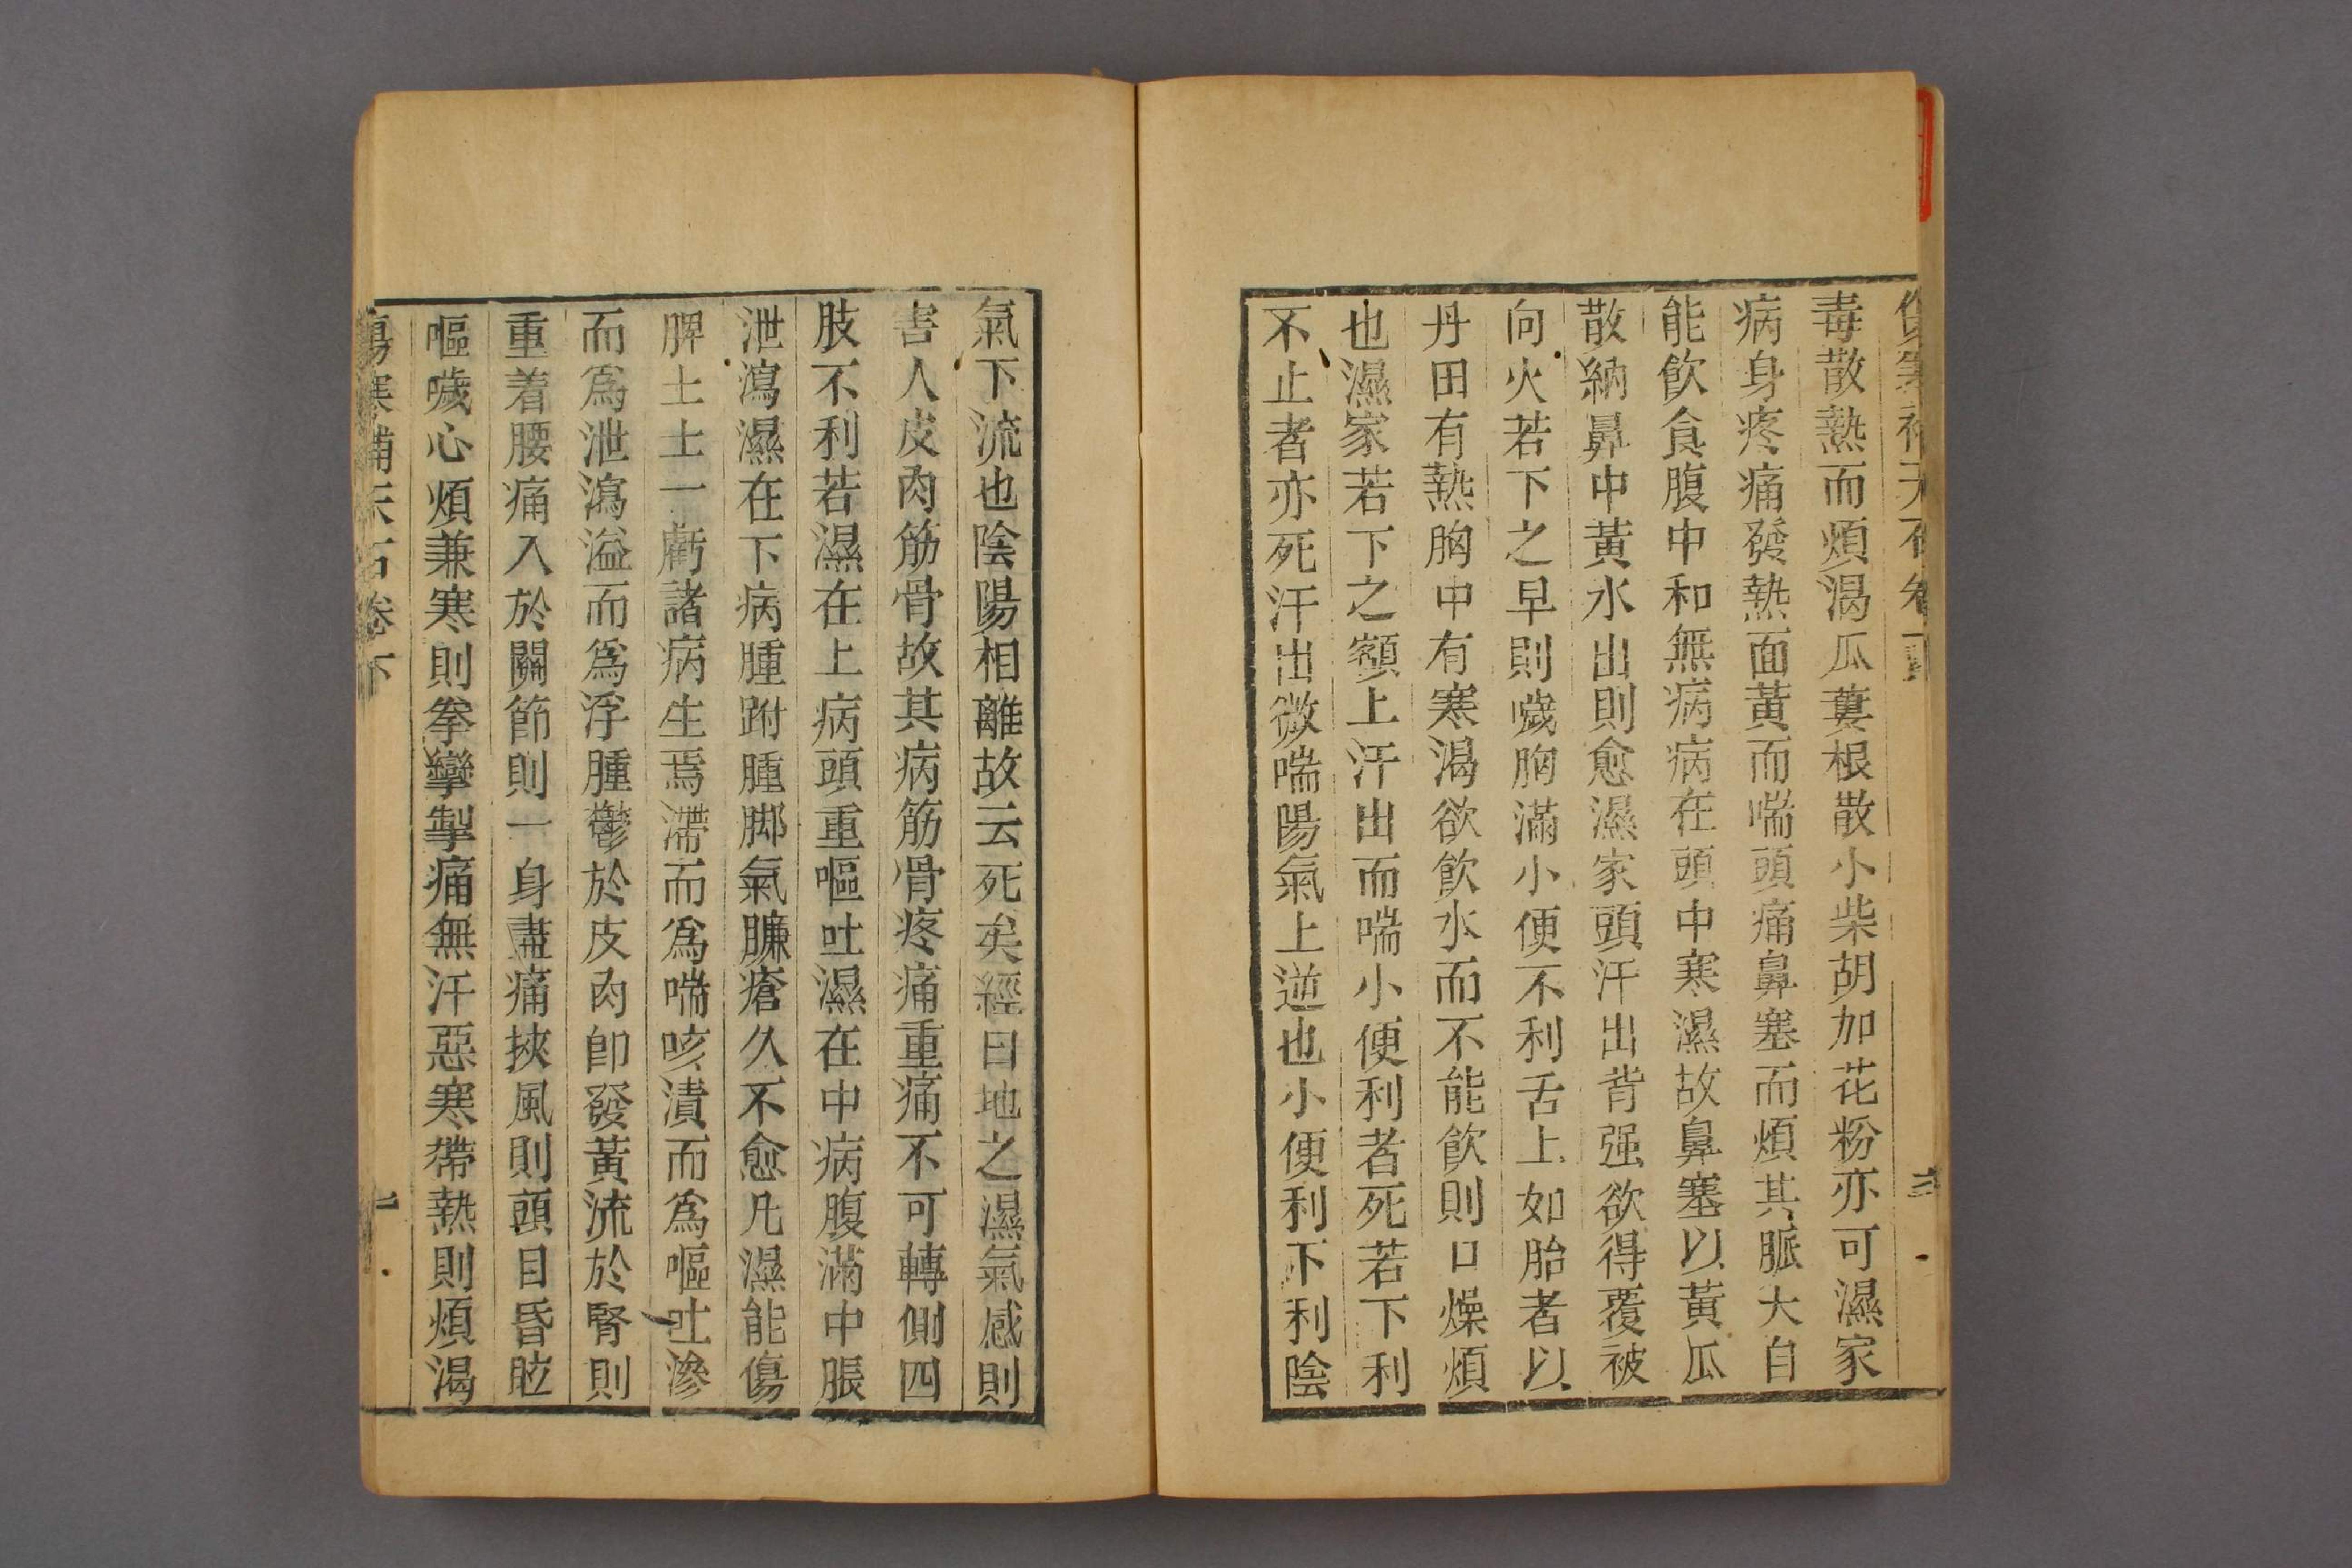 傷寒補天石卷下
毒散熱而煩渴瓜蔞根散小柴胡加花粉亦可濕家
病身疼痛發熱面黃而喘頭痛鼻塞而煩其脈大自
能飲食腹中和無病病在頭中寒濕故鼻塞以黃瓜
散納鼻中黃水出則愈濕家頭汗出背强欲得覆被
向火若下之早則噦胸滿小便不利舌上如胎者以
丹田有熱胸中有寒渴欲飲水而不能飲則口燥煩
也濕家若下之額上汗出而喘小便利者死若下利
不止者亦死汗出微喘陽氣上逆也小便利下利陰
氣下流也陰陽相離故云死矣經曰地之濕氣感則
害人皮肉筋骨故其病筋骨疼痛重痛不可轉側四
肢不利若濕在上病頭重嘔吐濕在中病腹滿中脹
泄瀉濕在下病腫跗腫脚氣臁瘡久不愈凡濕能傷
脾土土一虧諸病生焉滯而爲喘咳漬而爲嘔吐滲
而爲泄瀉溢而爲浮腫鬱於皮肉卽發黃流於腎則
重着腰痛入於關節則一身盡痛挾風則頭目昏眩
嘔噦心煩兼寒則拳攣掣痛無汗惡寒帶熱則煩渴
傷寒補天石卷下